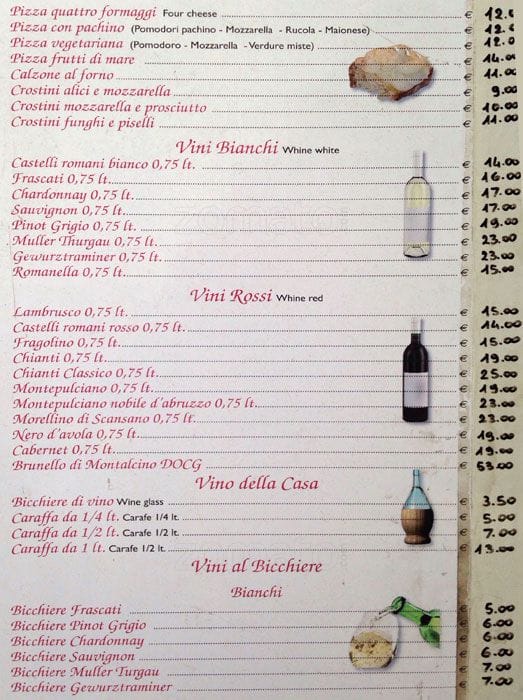 Pizza quattro formaggi Four cheese € 12.
Pizza con pachino (Pomodori pachino - Mozzarella - Rucola - Maionese) € 12.
Pizza vegetariana (Pomodoro - Mozzarella - Verdure miste) € 12.0
Pizza frutti di mare € 14.00
Calzone al forno € 11.00
Crostini alici e mozzarella € 9.00
Crostini mozzarella e prosciutto € 10.00
Crostini funghi e piselli € 11.00
Vini Bianchi Whine white
Castelli romani bianco 0,75 lt. € 14.00
Frascati 0,75 lt. € 16.00
Chardonnay 0,75 lt. € 17.00
Sauvignon 0,75 lt. € 17.00
Pinot Grigio 0,75 lt. € 19.00
Muller Thurgau 0,75 lt. € 23.00
Gewurztraminer 0,75 lt. € 23.00
Romanella 0,75 lt. € 15.00
Vini Rossi Whine red
Lambrusco 0,75 lt. € 15.00
Castelli romani rosso 0,75 lt. € 14.00
Fragolino 0,75 lt. € 15.00
Chianti 0,75 lt. € 19.00
Chianti Classico 0,75 lt. € 25.00
Montepulciano 0,75 lt. € 19.00
Montepulciano nobile d'abruzzo 0,75 lt. € 23.00
Morellino di Scansano 0,75 lt. € 23.00
Nero d'avola 0,75 lt. € 19.00
Cabernet 0,75 lt. € 19.00
Brunello di Montalcino DOCG € 53.00
Vino della Casa
Bicchiere di vino Wine glass € 3.50
Caraffa da 1/4 lt. Carafe 1/4 lt. € 5.00
Caraffa da 1/2 lt. Carafe 1/2 lt. € 7.00
Caraffa da 1 lt. Carafe 1/2 lt. € 13.00
Vini al Bicchiere
Bianchi
Bicchiere Frascati € 5.00
Bicchiere Pinot Grigio € 6.00
Bicchiere Chardonnay € 6.00
Bicchiere Sauvignon € 6.00
Bicchiere Muller Turgau € 7.00
Bicchiere Gewurztraminer € 7.00